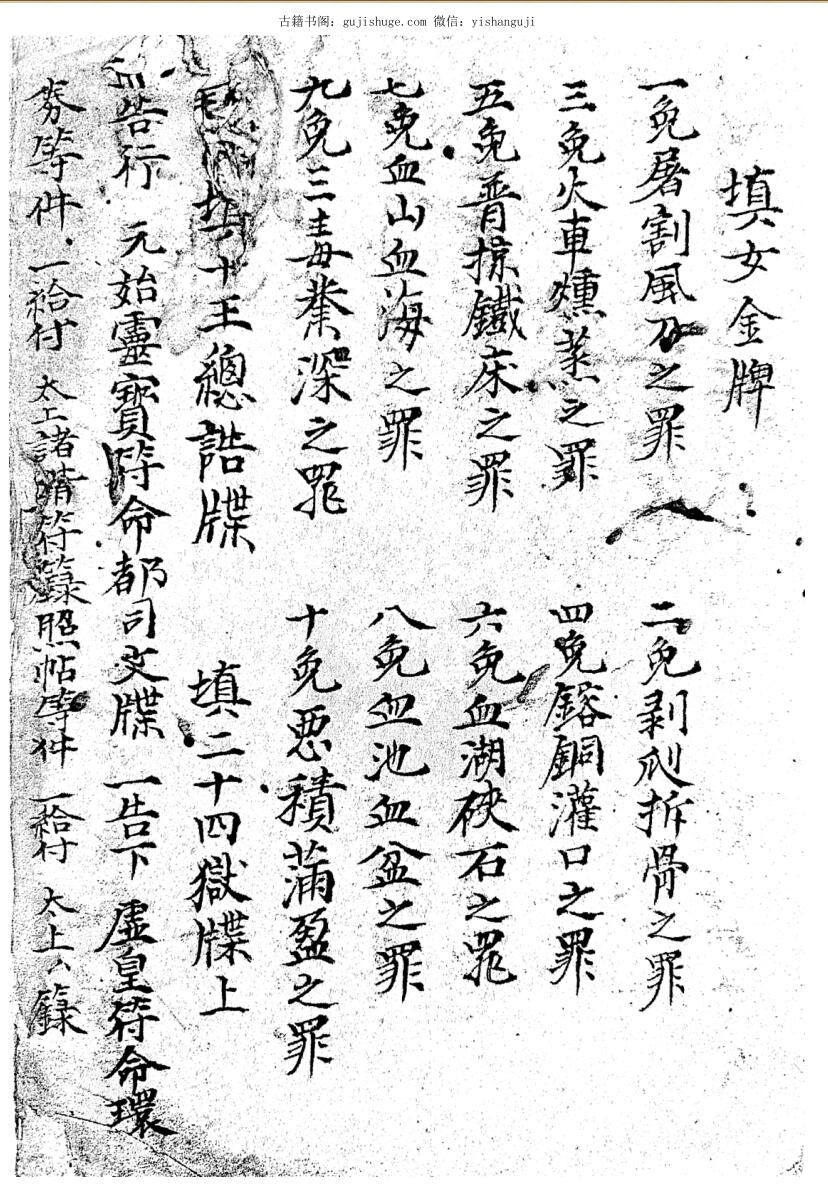 古籍书阁：gujishuge.com 微信：yishanguji
填女金牌
一免屠割風刀之罪 二免剥爪拆骨之罪
三免火車燻蒸之罪 四免鎔銅灌口之罪
五免胥掠鐵床之罪 六免血湖硤石之罪
七免血山血海之罪 八免血池血盆之罪
九免三毒業深之罪 十免惡積蒲盈之罪
填十王總誥牒 填二十四獄牒上
告行 元始靈寶符命都司文牒 一告下 虛皇符命環
券等件 一給付 太上諸晴符籙照帖等件 一給付 太上八籙